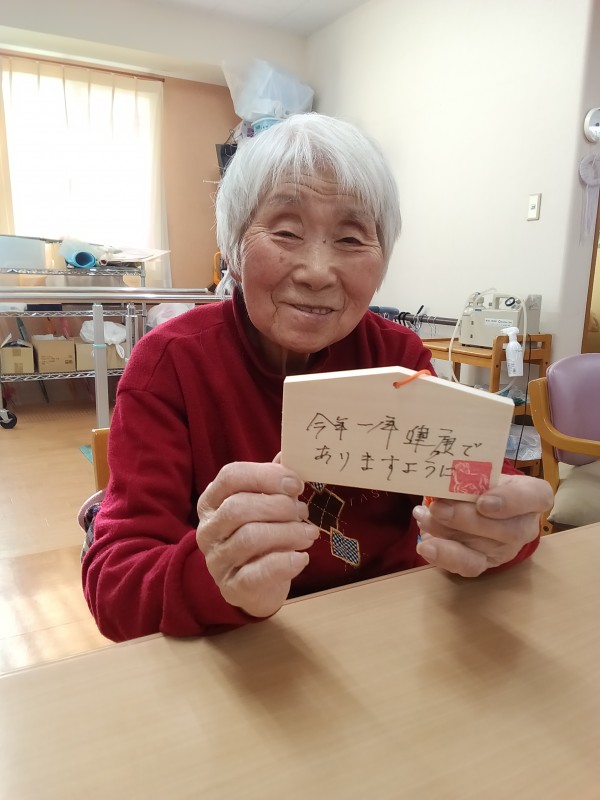 今年一年健康で
ありますように